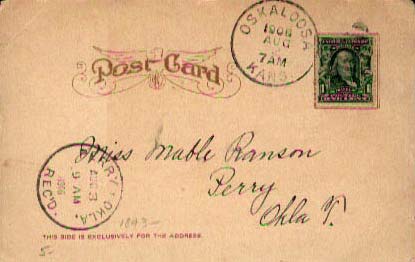 OSKALOOSA
1906
AUG
7AM
KANS.
Post Card
1
Miss Mable Ranson
Perry
Okla T.
PERRY OKLA.
AUG 3
9 AM
1906
REC'D.
1843-
THIS SIDE IS EXCLUSIVELY FOR THE ADDRESS.
5-